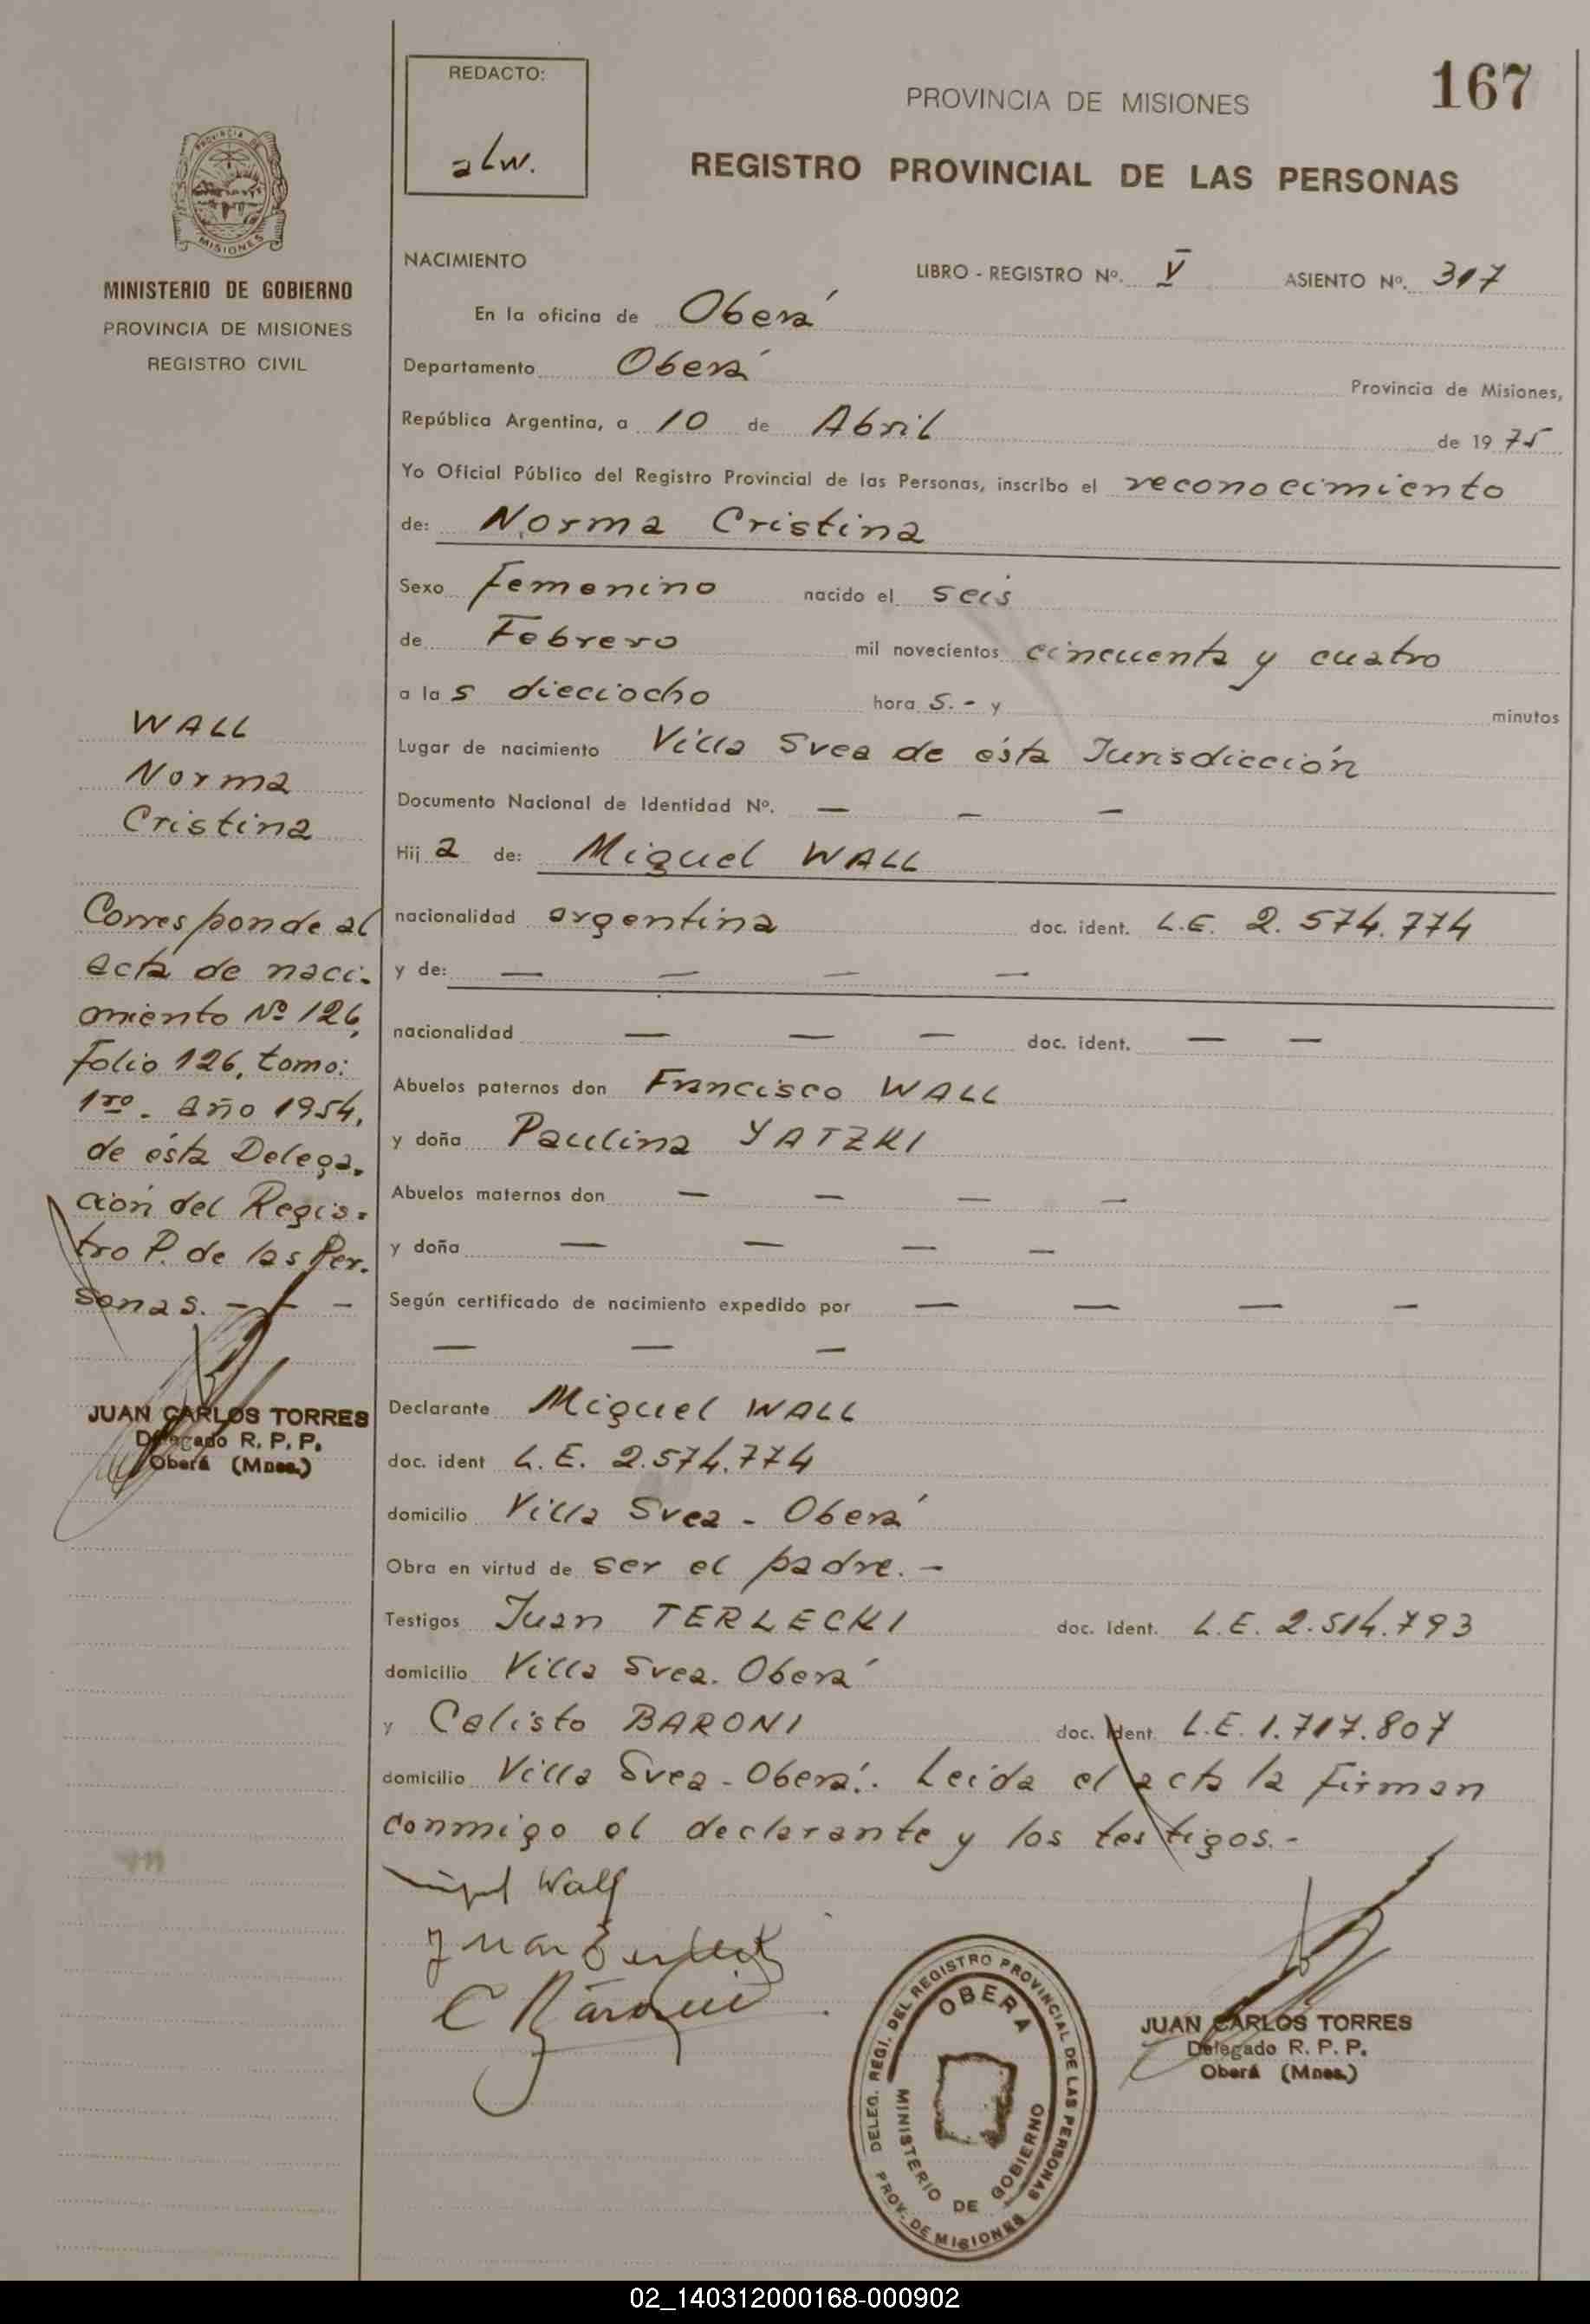 167
REDACTO:
alw.
PROVINCIA DE MISIONES
REGISTRO PROVINCIAL DE LAS PERSONAS
PROVINCIA DE
MISIONES
MINISTERIO DE GOBIERNO
PROVINCIA DE MISIONES
REGISTRO CIVIL
NACIMIENTO
LIBRO - REGISTRO Nº. V ASIENTO Nº. 317
En la oficina de Oberá
Departamento Oberá Provincia de Misiones,
República Argentina, a 10 de Abril de 1975
Yo Oficial Público del Registro Provincial de las Personas, inscribo el reconocimiento
de: Norma Cristina
Sexo Femenino nacido el seis
de Febrero mil novecientos cincuenta y cuatro
a las dieciocho horas.- y minutos
Lugar de nacimiento Villa Svea de ésta Jurisdicción
Documento Nacional de Identidad Nº. — — —
Hija de: Miguel WALL
nacionalidad argentina doc. ident. L.E. 2.574.774
y de: — — — —
nacionalidad — — — doc. ident. — —
Abuelos paternos don Francisco WALL
y doña Paulina YATZKI
Abuelos maternos don — — — —
y doña — — — —
Según certificado de nacimiento expedido por — — — —
— — —
Declarante Miguel WALL
doc. ident L.E. 2.574.774
domicilio Villa Svea - Oberá
Obra en virtud de ser el padre.-
Testigos Juan TERLECKI doc. Ident. L.E. 2.514.793
domicilio Villa Svea. Oberá
y Calisto BARONI doc. Ident. L.E. 1.717.807
domicilio Villa Svea - Oberá.. Leída el acta la firman
conmigo el declarante y los testigos.-
WALL
Norma
Cristina
Corresponde al
acta de naci-
miento Nº 126,
Folio 126, tomo:
1ro. año 1954,
de ésta Delega-
ción del Regis-
tro P. de las Per-
sonas. - - -
JUAN CARLOS TORRES
Delegado R. P. P.
Oberá (Mnes.)
Wall
Juan
DELEG. REGI. DEL REGISTRO PROVINCIAL DE LAS PERSONAS
OBERA
MINISTERIO DE GOBIERNO
PROV. DE MISIONES
JUAN CARLOS TORRES
Delegado R. P. P.
Oberá (Mnes.)
02_140312000168-000902